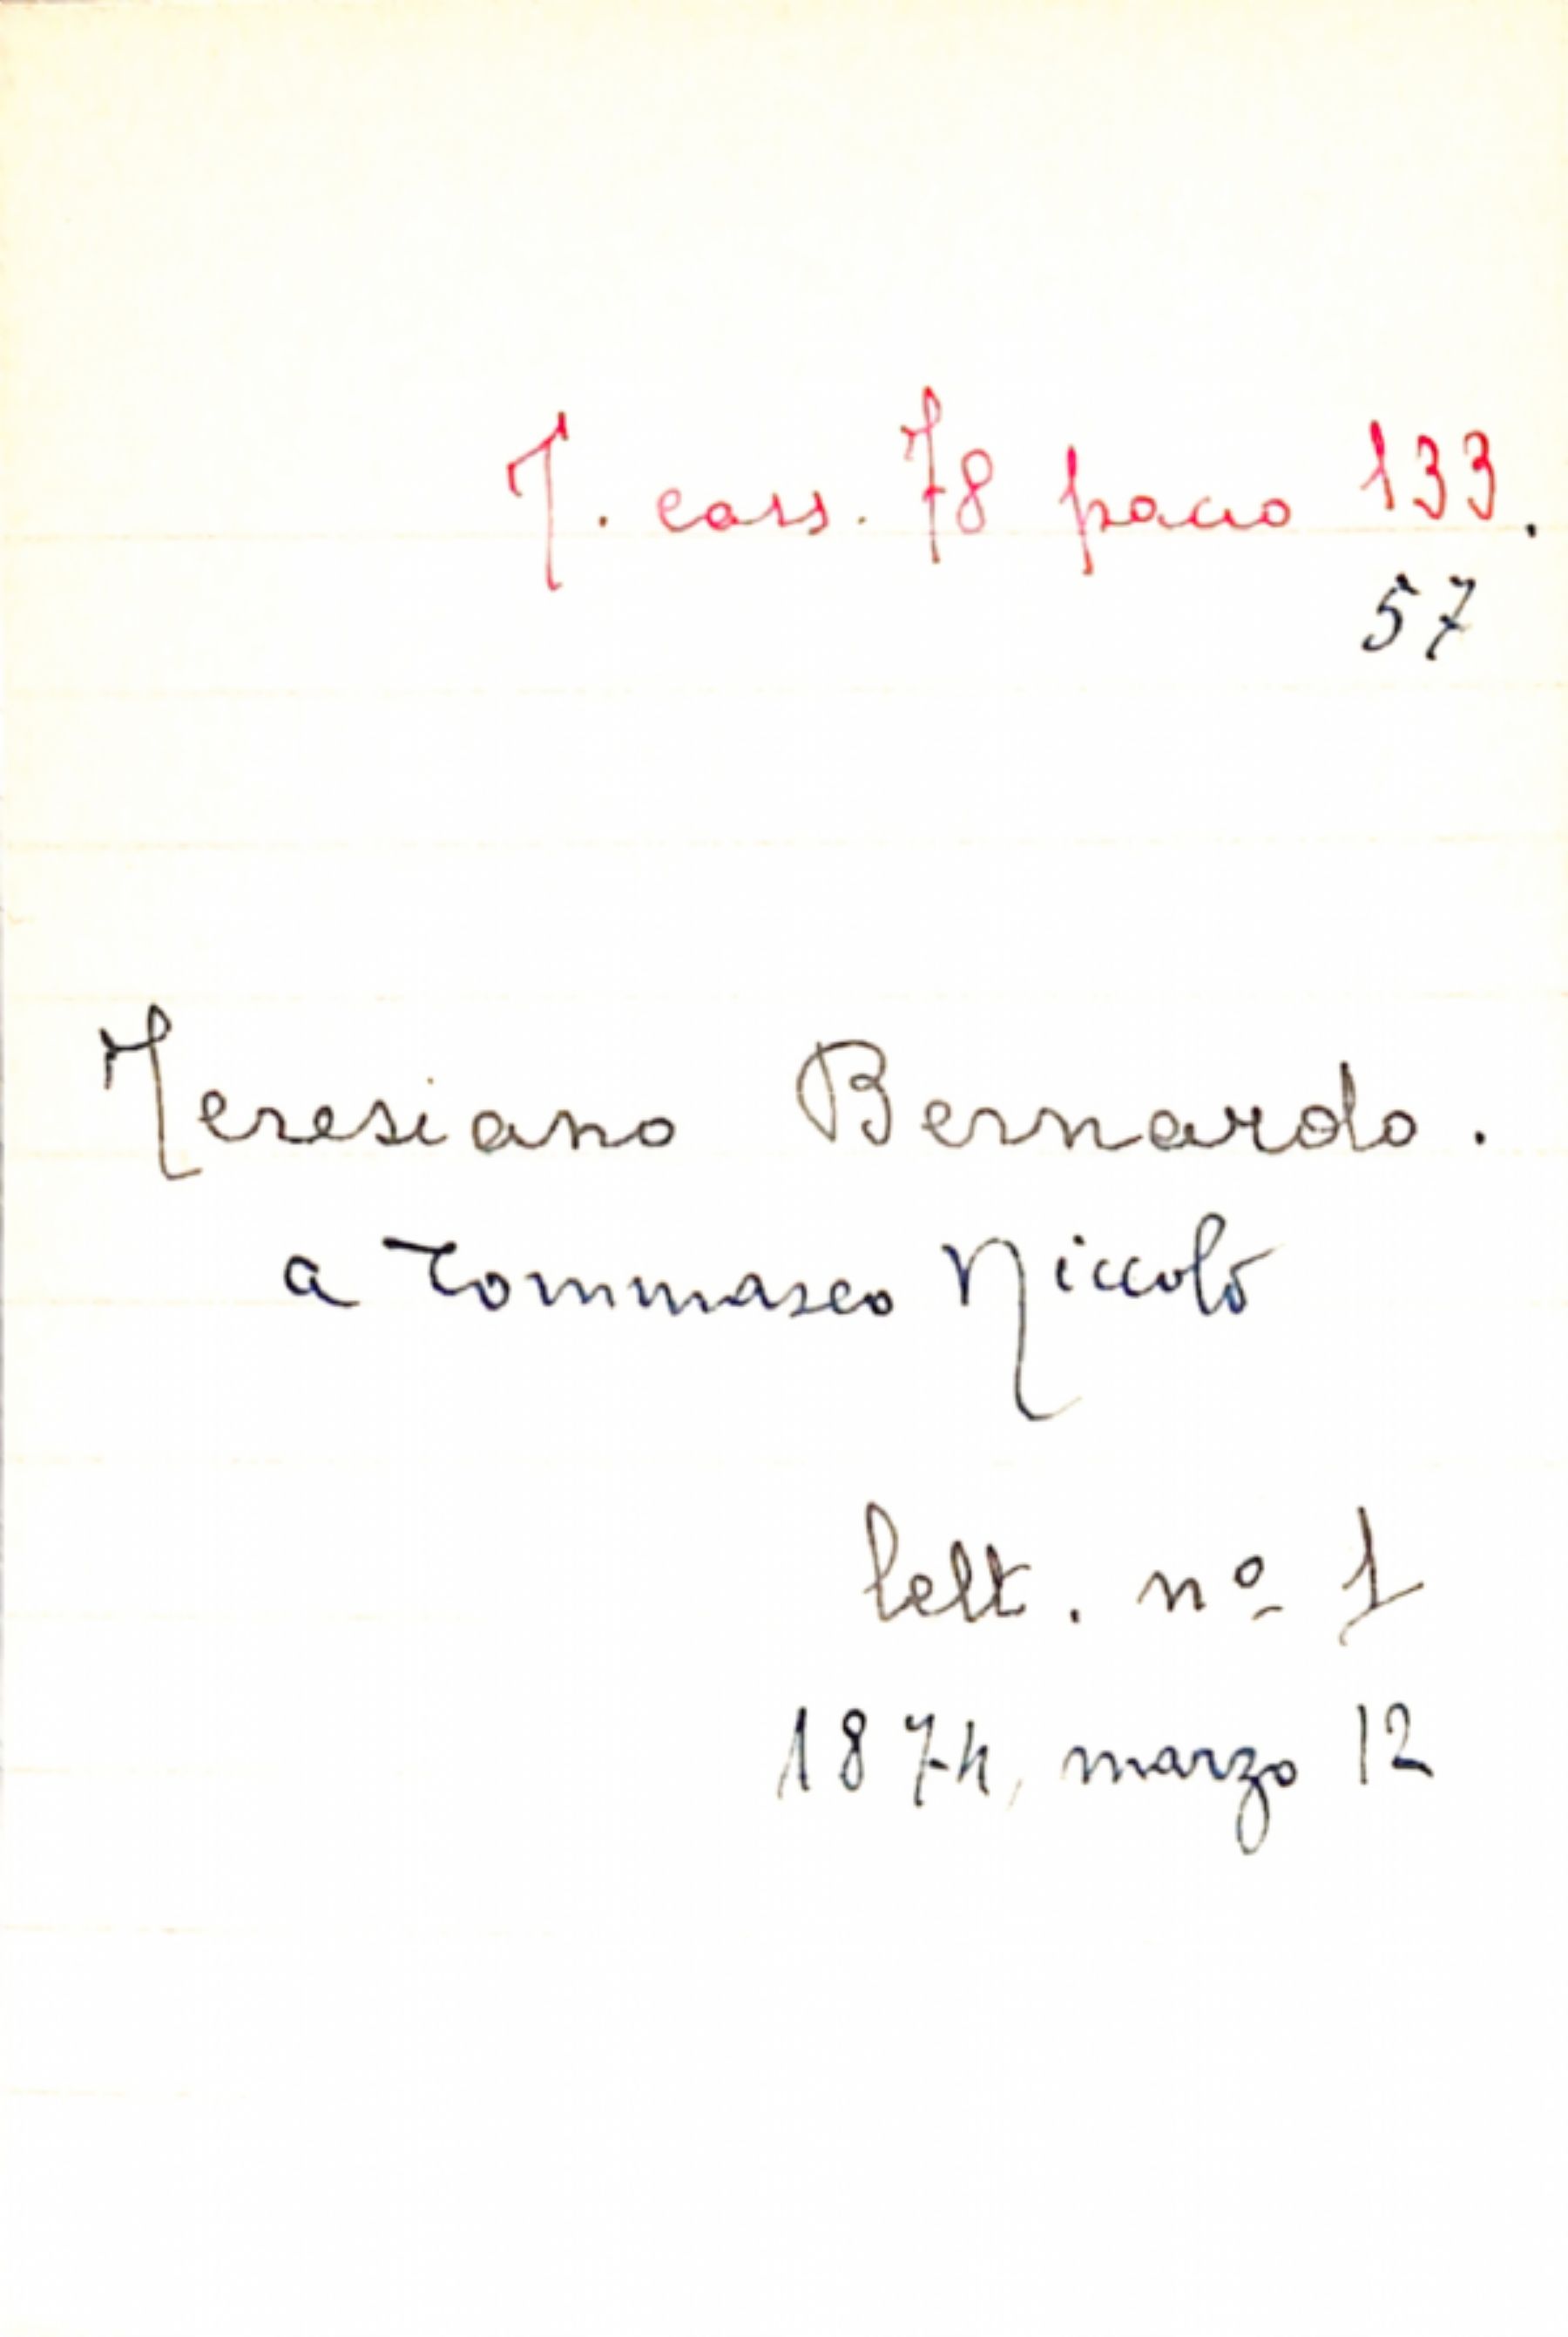 T. cass. 78 pacco 133.
57
Teresiano Bernardo.
a Tommaseo Niccolò
lett. nº 1
1874, marzo 12